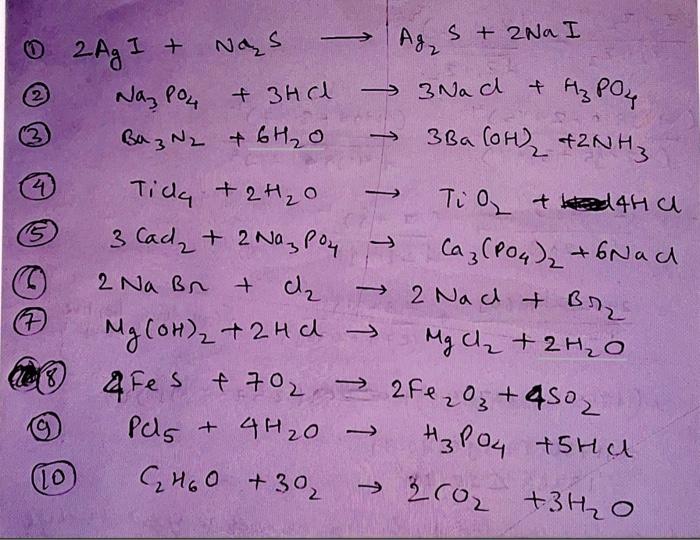 ① 2AgI + Na₂S → Ag₂S + 2NaI
② Na₃PO₄ + 3HCl → 3NaCl + H₃PO₄
③ Ba₃N₂ + 6H₂O → 3Ba(OH)₂ + 2NH₃
④ TiCl₄ + 2H₂O → TiO₂ + 4HCl
⑤ 3CaCl₂ + 2Na₃PO₄ → Ca₃(PO₄)₂ + 6NaCl
⑥ 2NaBr + Cl₂ → 2NaCl + Br₂
⑦ Mg(OH)₂ + 2HCl → MgCl₂ + 2H₂O
⑧ 4FeS + 7O₂ → 2Fe₂O₃ + 4SO₂
⑨ PCl₅ + 4H₂O → H₃PO₄ + 5HCl
⑩ C₂H₆O + 3O₂ → 2CO₂ + 3H₂O